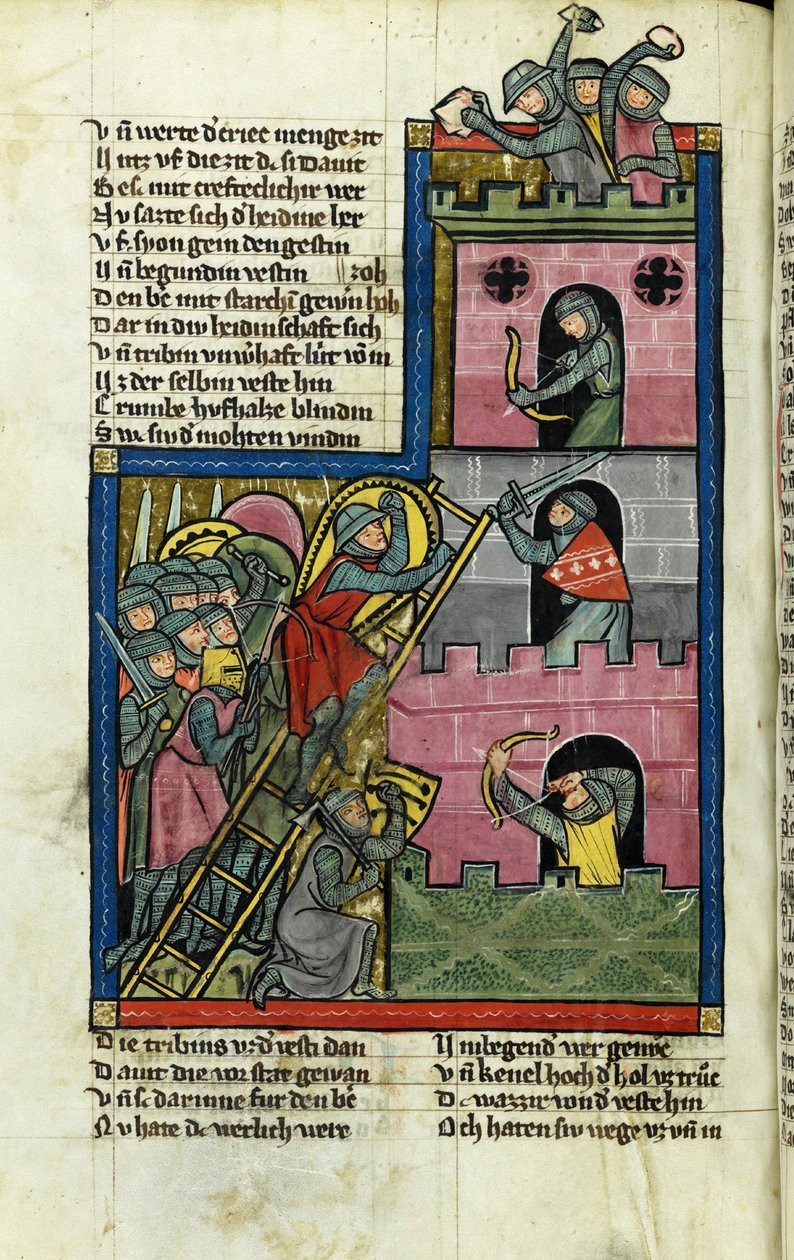 Vn̄ werte d᾽ criec menge zit
Untz vf die zit dc si Dauit
Besc mit crefteclichir wer
Nv sazte sich d᾽ heidine her
Vf syon gein den gestin
Vn̄ begundin vestin ‖ zoh
Den bc mit starchē gewn hoh
Dar in div heidinschaft sich
Vn̄ tribin vnw᾽haft lv̂t von in
Uz der selbin veste hin
Crumbe hvfhalze blindin
Swc siv d᾽ mohten vindin
Die tribins vz d᾽ vesti dan
Dauit die vor stat gewan
Vn̄ sc darinne fur den bc
Nv hate dc werlich werc
Umbegend᾽ wer genv̊c
Vn̄ kenel hoch d᾽ hol vz trv̊c
Dc wazzir von d᾽ veste hin
Och haten siv wege vz vn̄ in